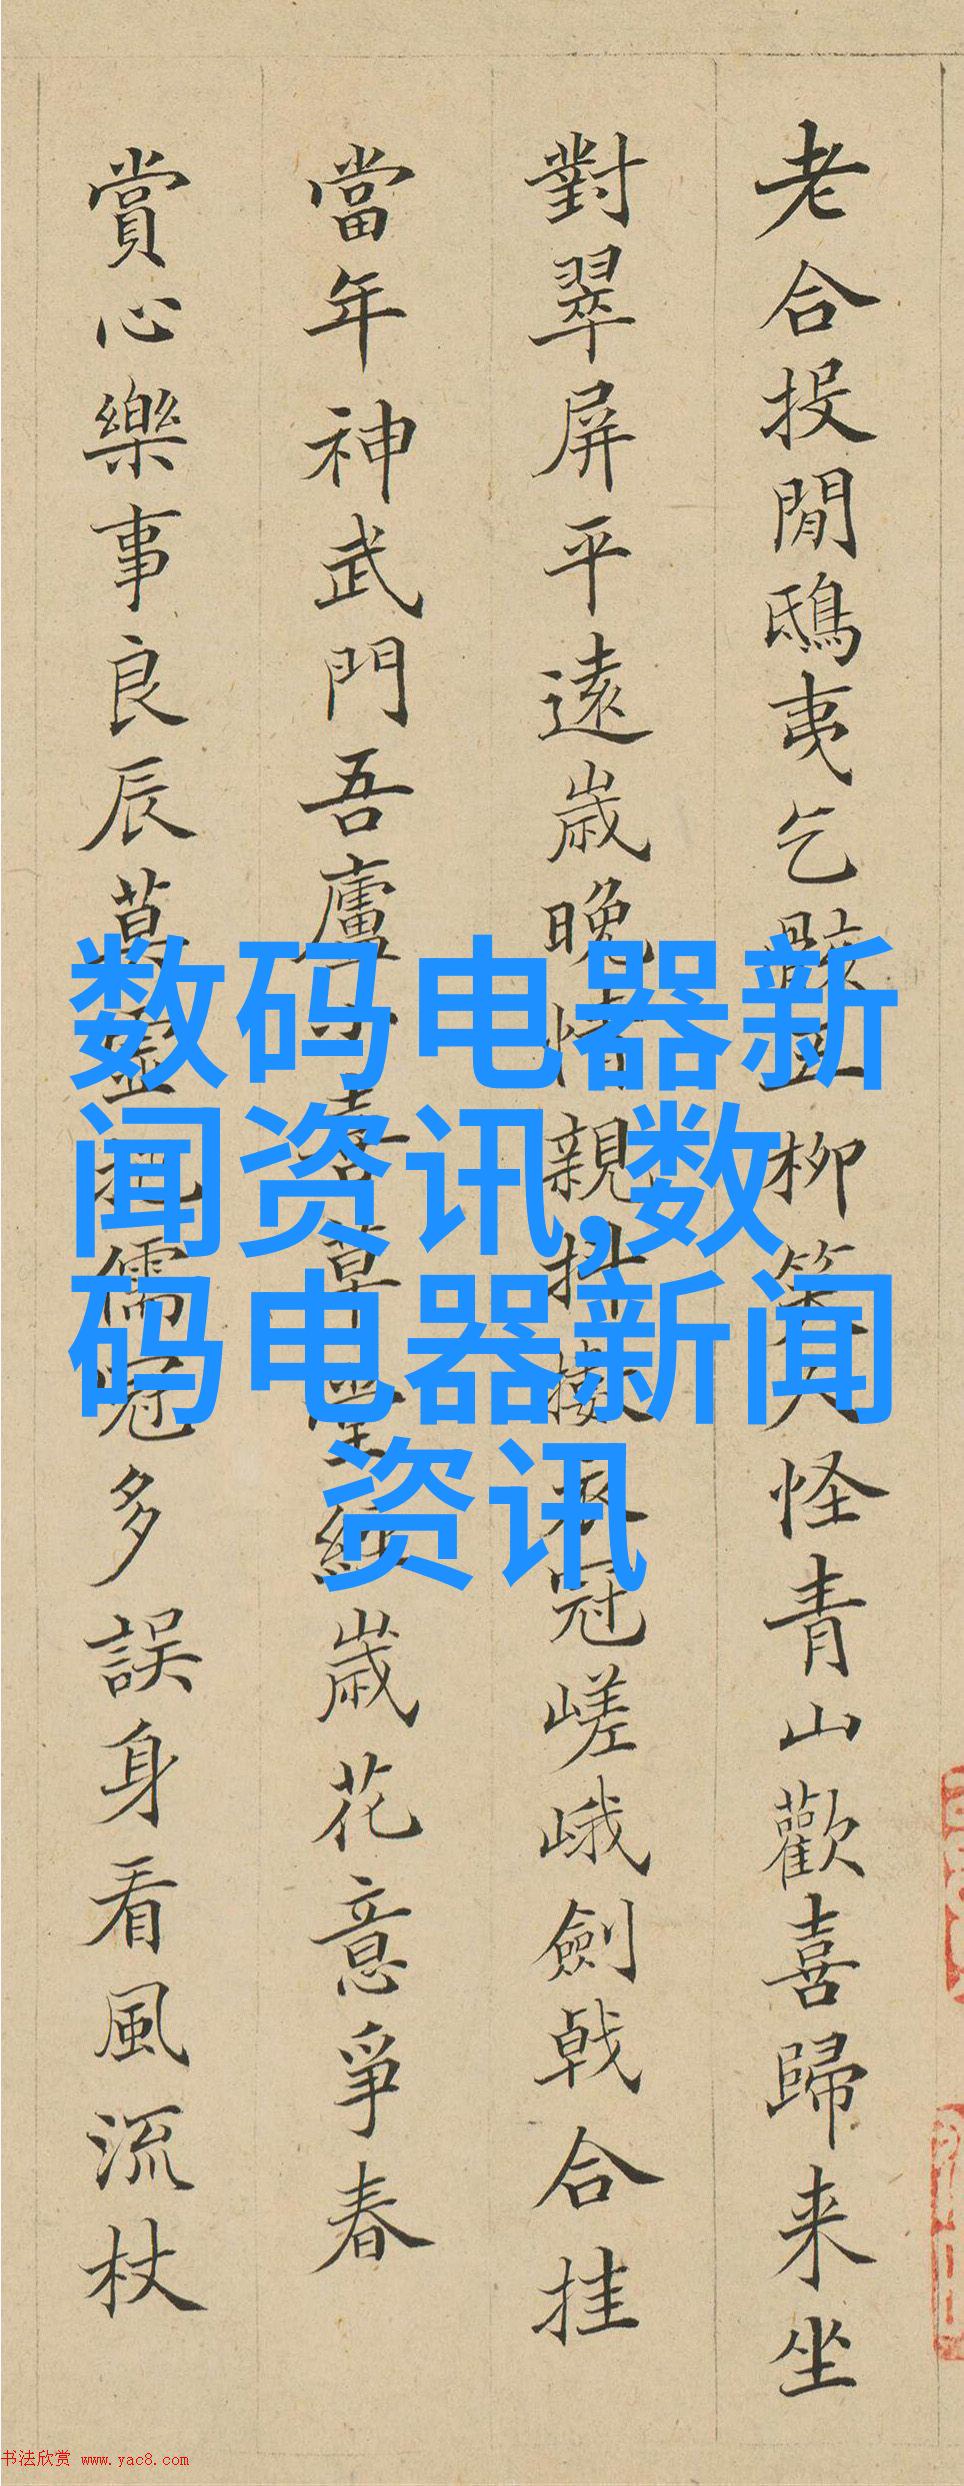 老合投閒鴟夷乞骸五柳策怪青山歡喜歸来坐
對翠屏平遠歲晚情親衣冠嵯峨劍戟合挂
當年神武門吾廬喜草堂經歲花意爭春
賞心樂事良辰莫虛儒冠多誤身看風流杖
数码电器新
闻资讯,数
码电器新闻
资讯
书法欣赏 www.yac8.com